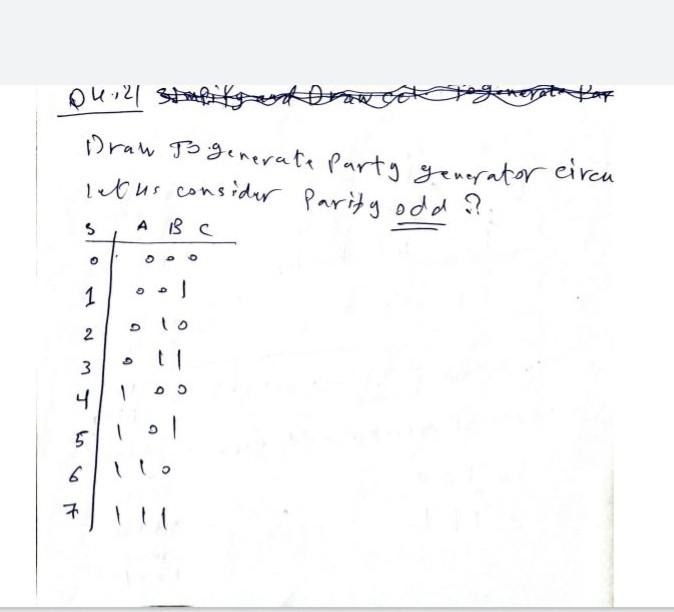 Q4.21 Simplify and Draw cct. To generate Par
Draw To generate Party generator circu
let us consider Parity odd ?
S A B C
0 0 0 0
1 0 0 1
2 0 1 0
3 0 1 1
4 1 0 0
5 1 0 1
6 1 1 0
7 1 1 1